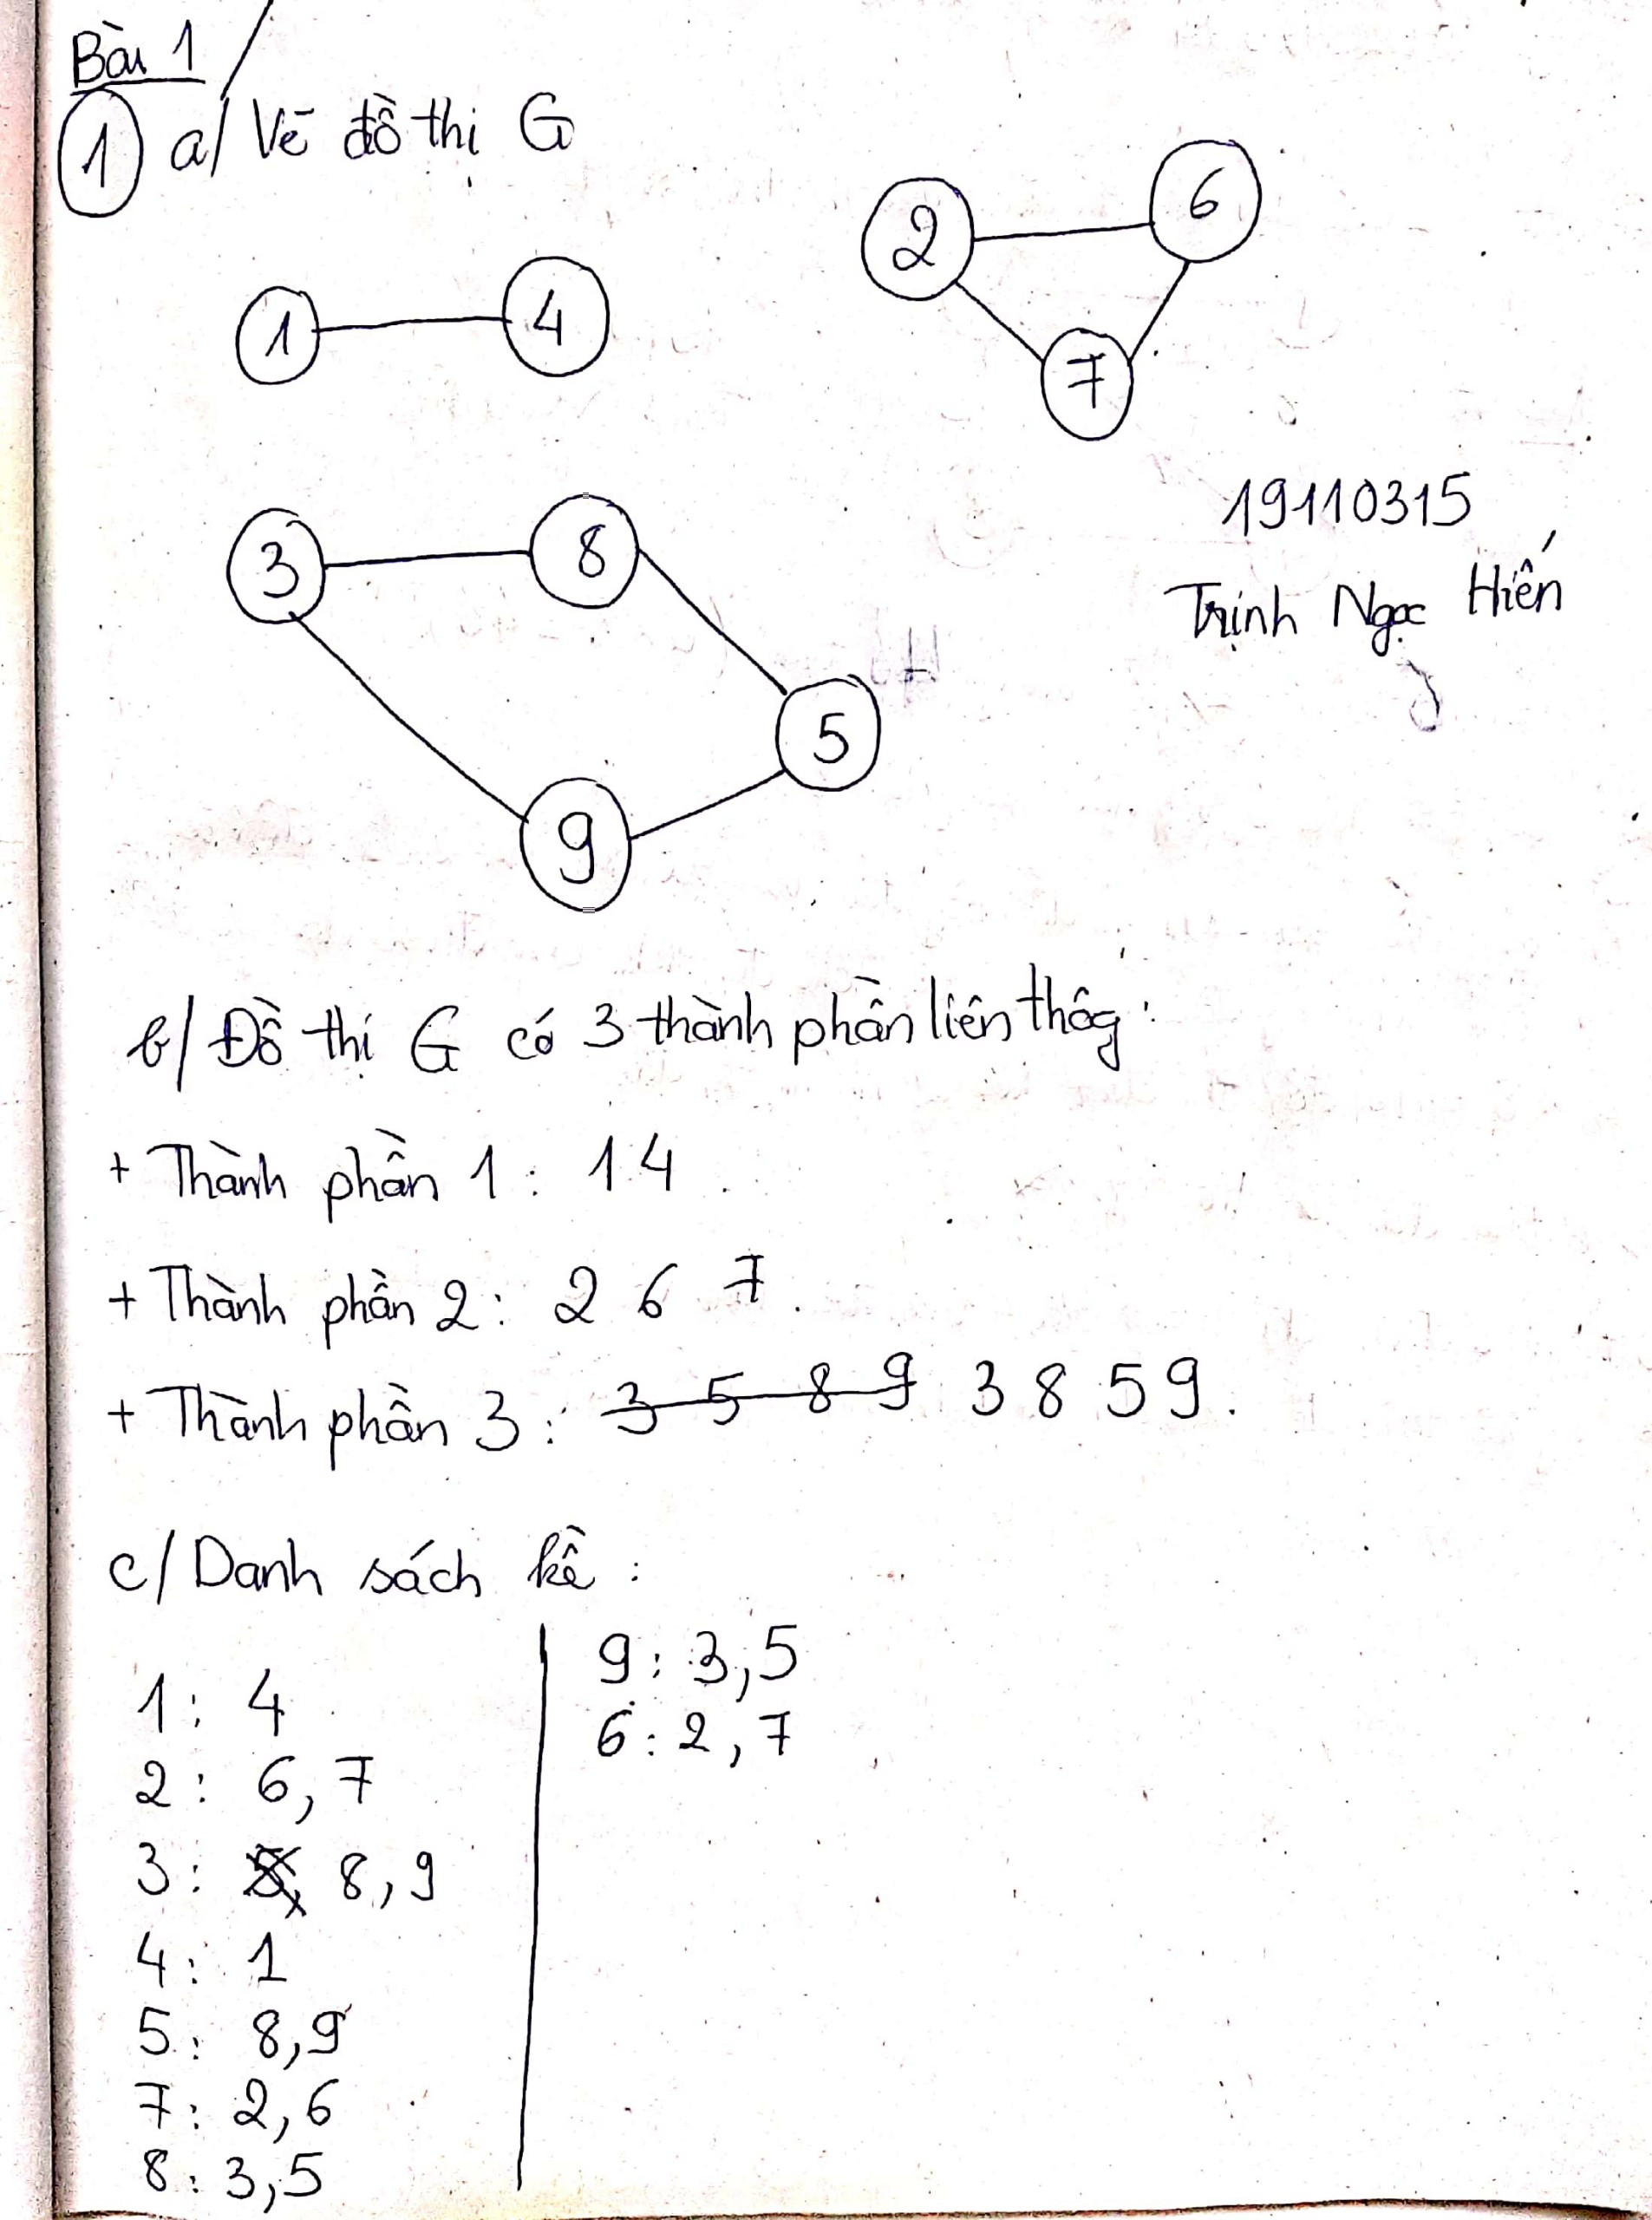 Bài 1
1 a/ Vẽ đồ thị G
2 6
1 4
7
19110315
Trịnh Ngọc Hiến
3 8
5
9
b/ Đồ thị G có 3 thành phần liên thôg:
+ Thành phần 1: 1 4.
+ Thành phần 2: 2 6 7.
+ Thành phần 3: 3 5 8 9 3 8 5 9.
c/ Danh sách kề:
1: 4
2: 6, 7
3: 8, 9
4: 1
5: 8, 9
7: 2, 6
8: 3, 5
9: 3, 5
6: 2, 7